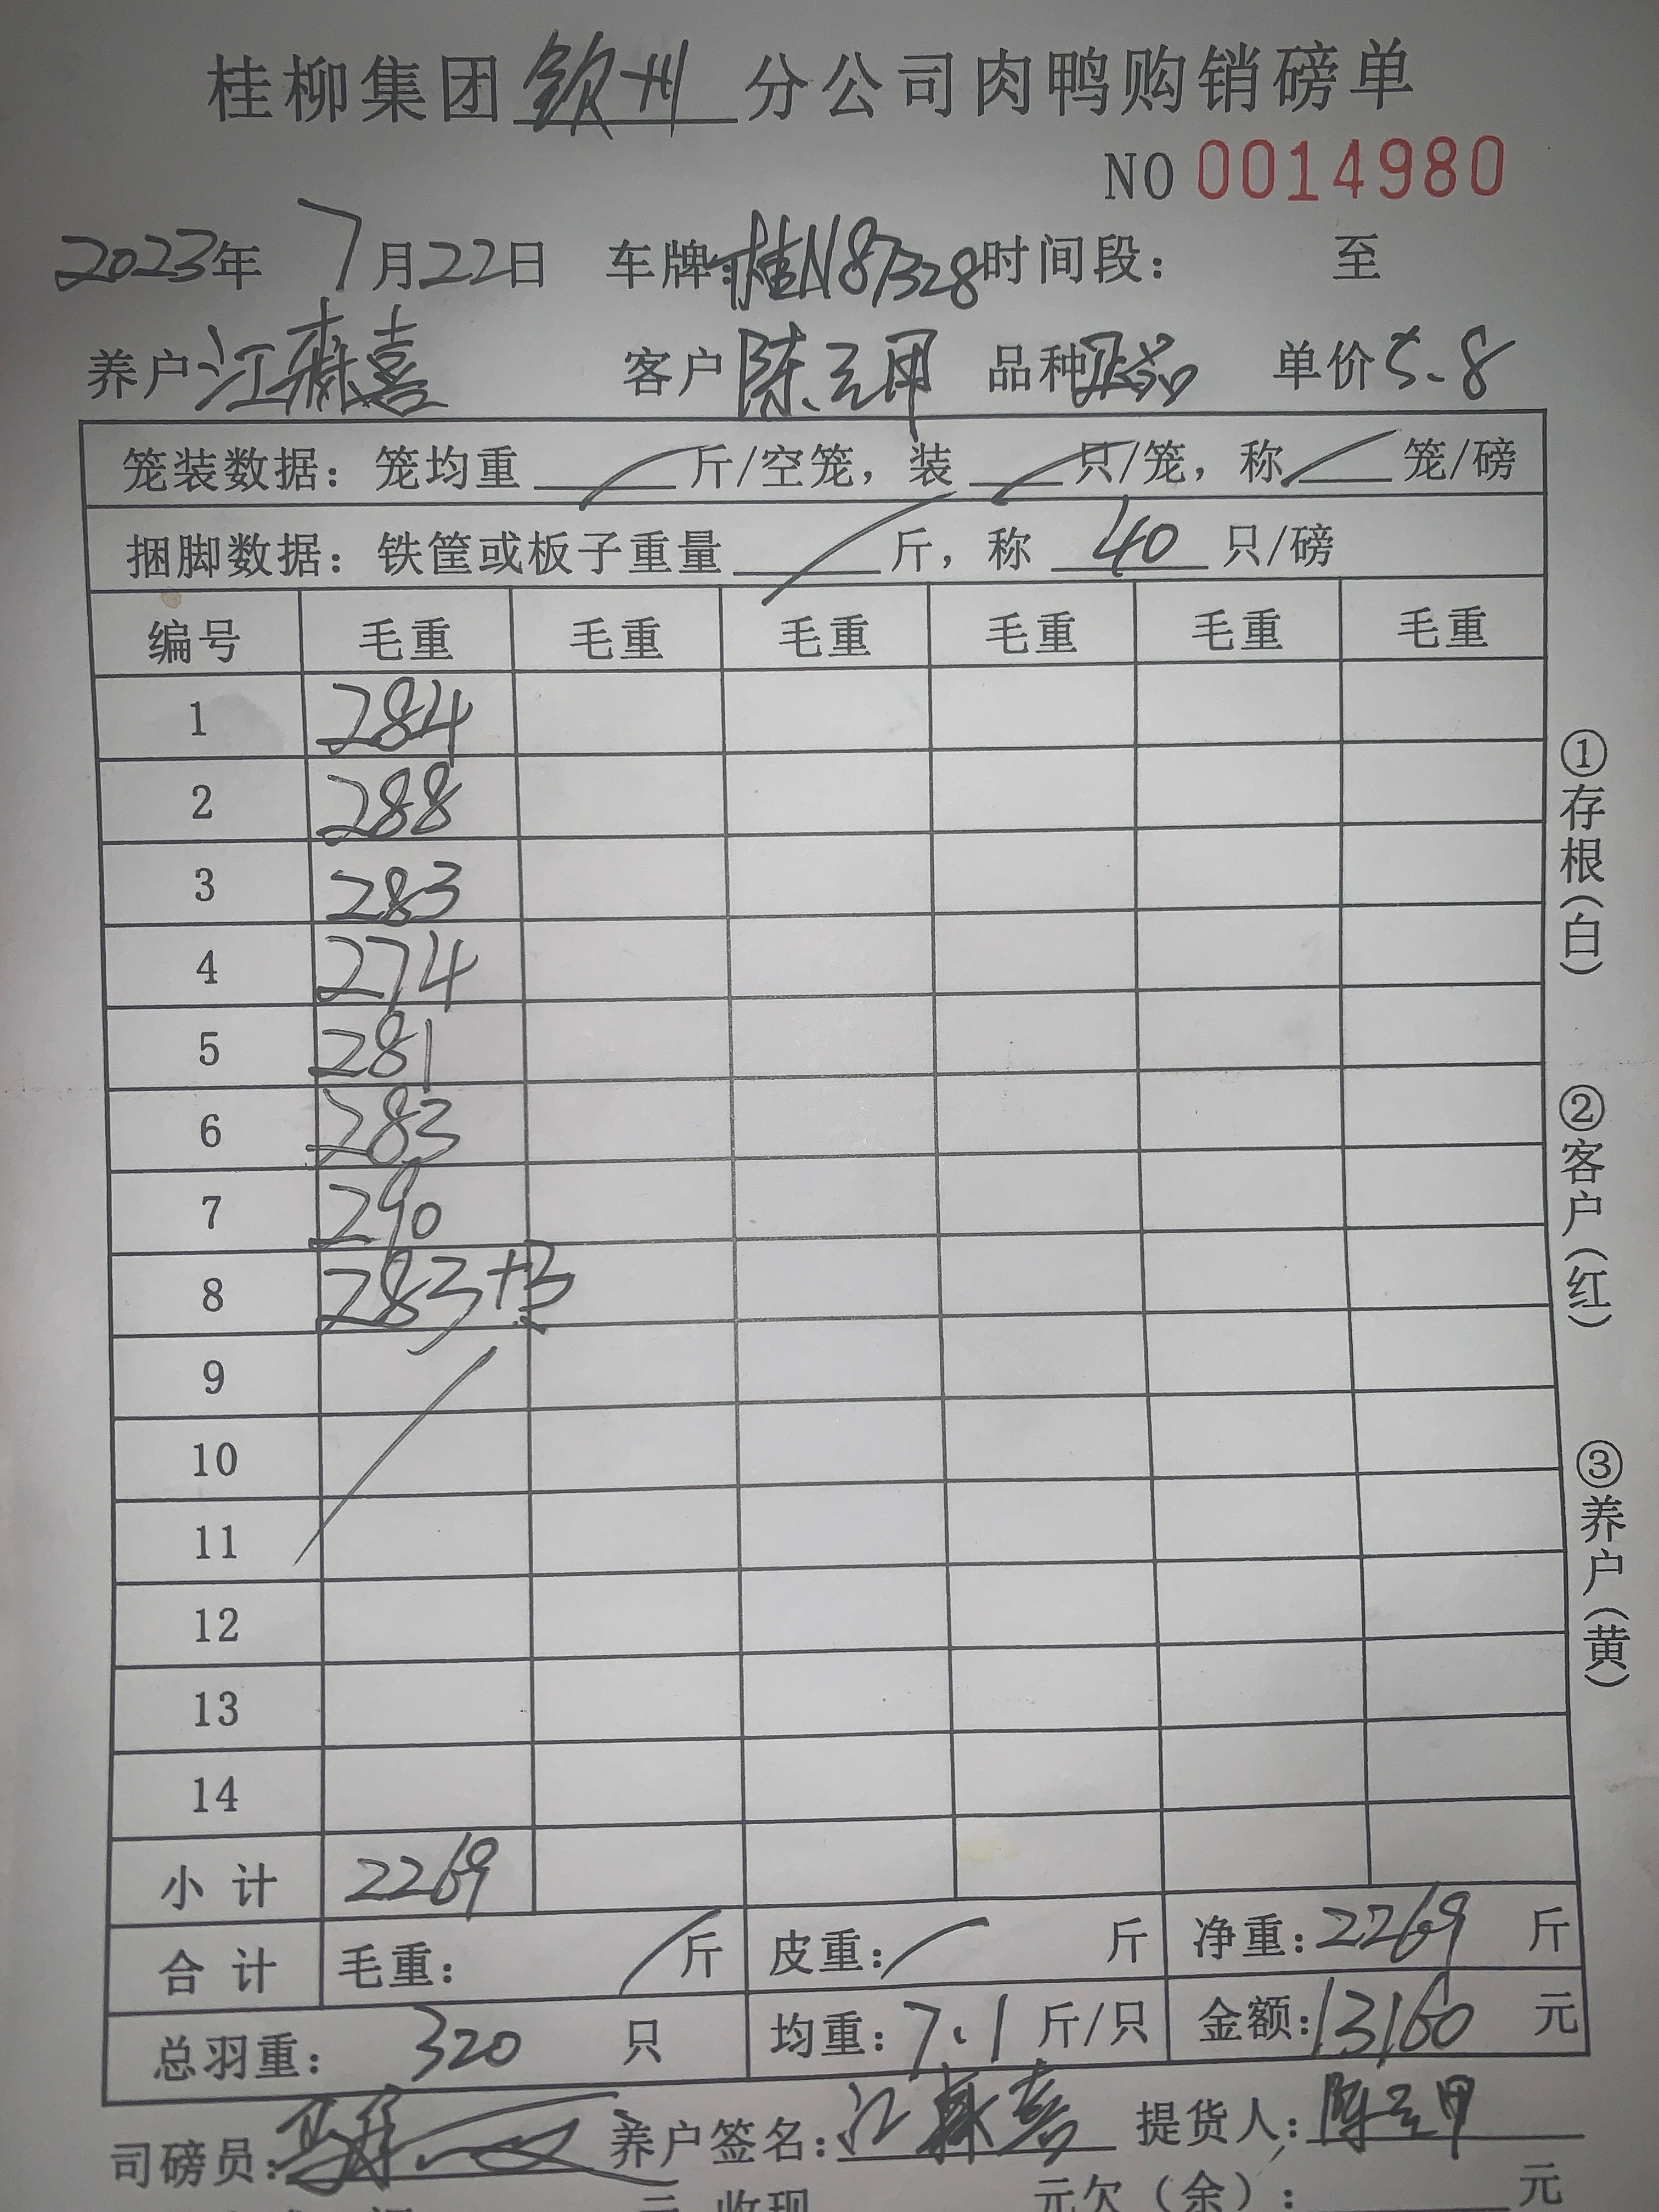 桂柳集团钦州分公司肉鸭购销磅单
NO 0014980
2023年 7月22日 车牌:桂N87328 时间段: 至
养户 江麻喜 客户 陈云甲 品种 正品 单价 5.8
笼装数据: 笼均重 / 斤/空笼, 装 / 只/笼, 称 / 笼/磅
捆脚数据: 铁筐或板子重量 / 斤, 称 40 只/磅
编号 毛重 毛重 毛重 毛重 毛重 毛重
1 284
2 288
3 283
4 274
5 281
6 283
7 290
8 283+3
9
10
11
12
13
14
小计 2269
合计 毛重: / 斤 皮重: / 斤 净重: 2269 斤
总羽重: 320 只 均重: 7.1 斤/只 金额: 13160 元
司磅员: 养户签名: 江麻喜 提货人: 陈云甲
元欠(余): 元
①存根(白)
②客户(红)
③养户(黄)